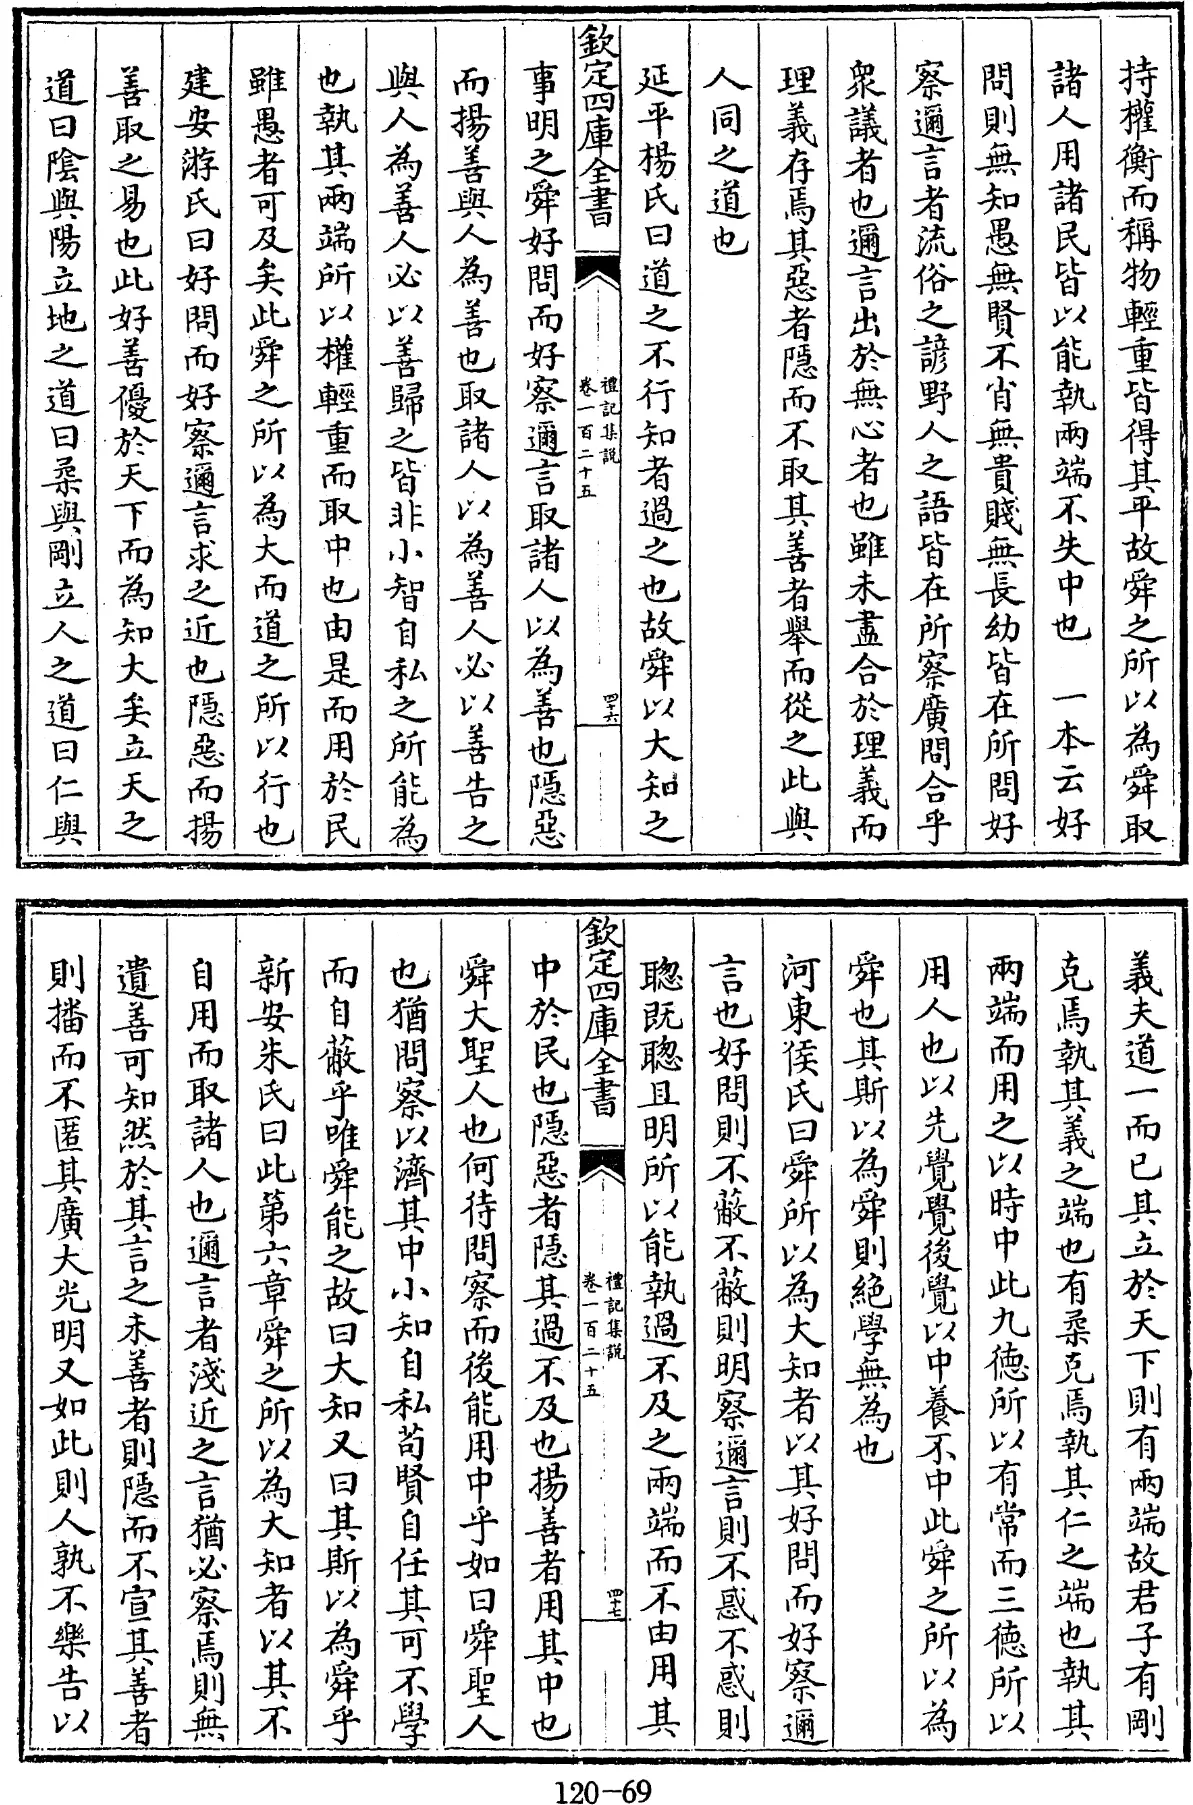 持權衡而稱物輕重皆得其平故舜之所以為舜取
諸人用諸民皆以能執兩端不失中也　一本云好
問則無知愚無賢不肖無貴賤無長幼皆在所問好
察邇言者流俗之諺野人之語皆在所察廣問合乎
衆議者也邇言出於無心者也雖未盡合於理義而
理義存焉其惡者隱而不取其善者舉而從之此與
人同之道也
延平楊氏曰道之不行知者過之也故舜以大知之
欽定四庫全書
禮記集說
卷一百二十五
四十六
事明之舜好問而好察邇言取諸人以為善也隱惡
而揚善與人為善也取諸人以為善人必以善告之
與人為善人必以善歸之皆非小智自私之所能為
也執其兩端所以權輕重而取中也由是而用於民
雖愚者可及矣此舜之所以為大而道之所以行也
建安游氏曰好問而好察邇言求之近也隱惡而揚
善取之易也此好善優於天下而為知大矣立天之
道曰陰與陽立地之道曰柔與剛立人之道曰仁與
義夫道一而已其立於天下則有兩端故君子有剛
克焉執其義之端也有柔克焉執其仁之端也執其
兩端而用之以時中此九德所以有常而三德所以
用人也以先覺覺後覺以中養不中此舜之所以為
舜也其斯以為舜則絕學無為也
河東侯氏曰舜所以為大知者以其好問而好察邇
言也好問則不蔽不蔽則明察邇言則不惑不惑則
聰既聰且明所以能執過不及之兩端而不由用其
欽定四庫全書
禮記集說
卷一百二十五
四十七
中於民也隱惡者隱其過不及也揚善者用其中也
舜大聖人也何待問察而後能用中乎如曰舜聖人
也猶問察以濟其中小知自私苟賢自任其可不學
而自蔽乎唯舜能之故曰大知又曰其斯以為舜乎
新安朱氏曰此第六章舜之所以為大知者以其不
自用而取諸人也邇言者淺近之言猶必察焉則無
遺善可知然於其言之未善者則隱而不宣其善者
則播而不匿其廣大光明又如此則人孰不樂告以
120-69